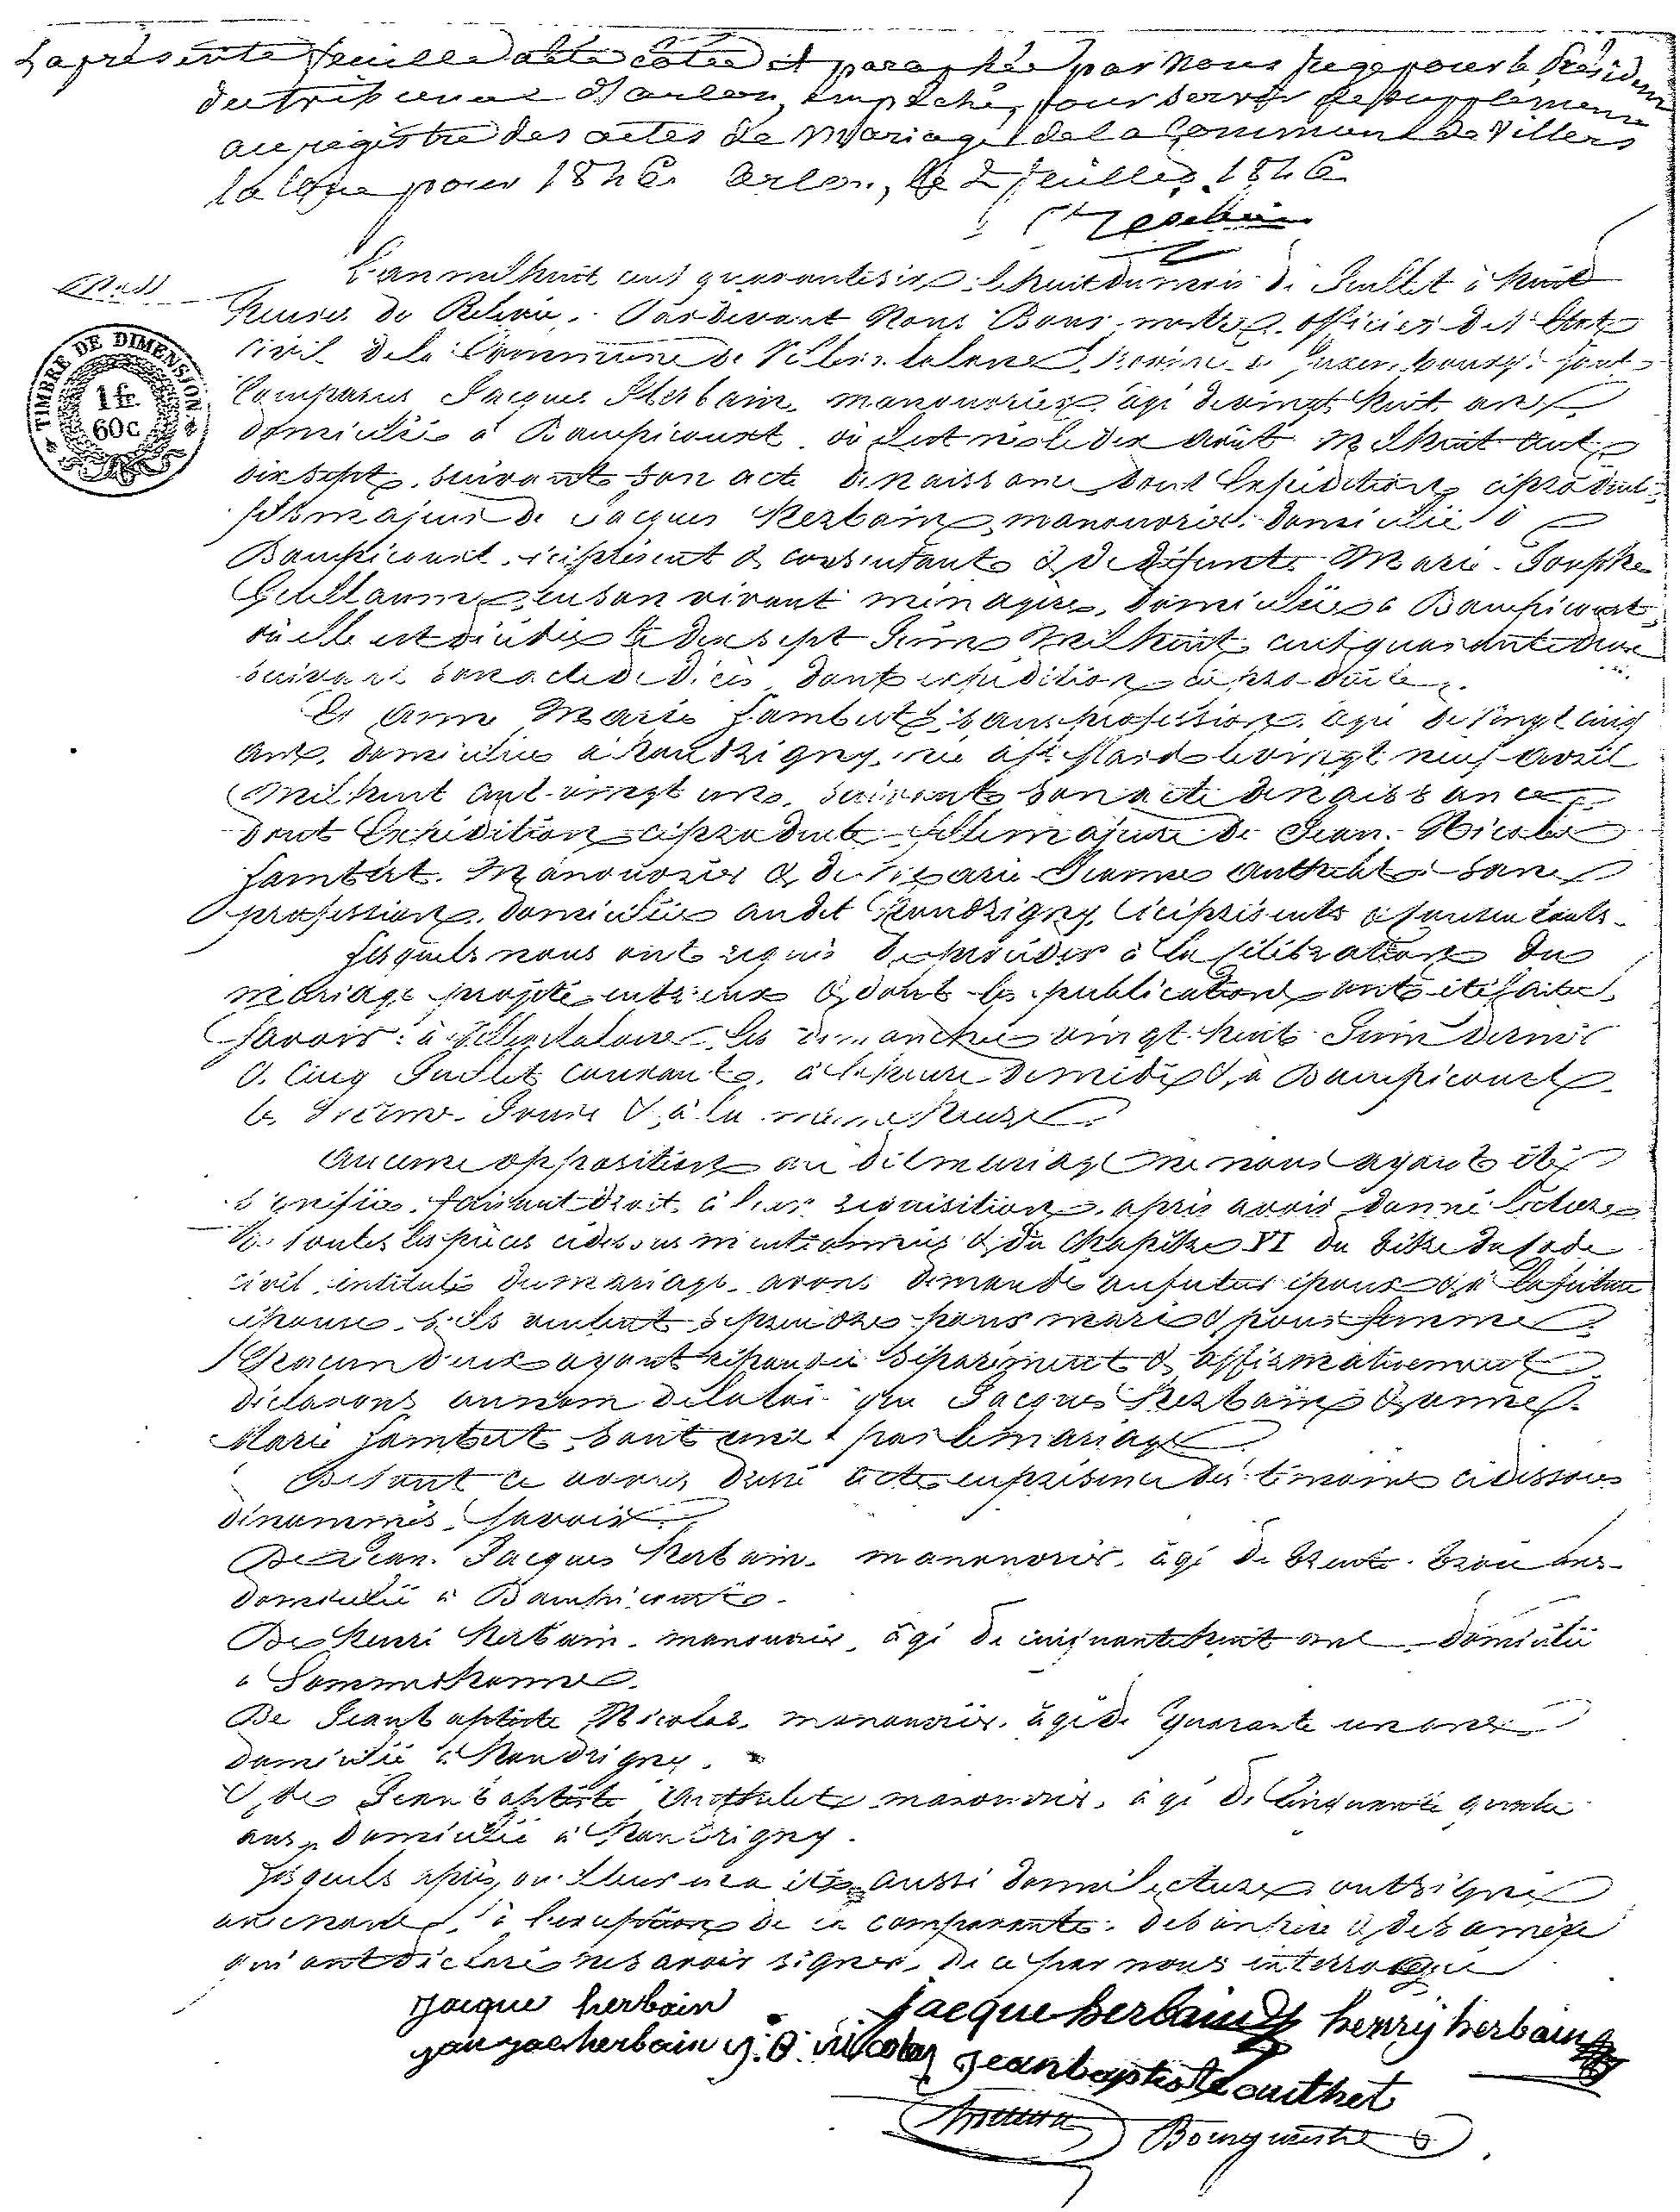 La présente feuille a été cotée et paraphée par Nous Juge pour le Président
du tribunal d'arlon, empêché, pour servir de supplément
au registre des actes de Mariage de la Commune de Villers
la loue pour 1846. Arlon, le 2 Juillet 1846
L'an mil huit cent quarante six, le huit du mois de Juillet à huit
heures de Relevée. Pardevant Nous Bourgmestre officier de l'Etat
civil de la Commune de Villers-la-loue, Province de Luxembourg, sont
TIMBRE DE DIMENSION.
1 fr.
60 c
Comparus Jacques Herbain, manouvrier, âgé de vingt huit ans
domicilié à Bampicourt où il est né le dix Août Mil huit cent
dix sept, suivant son acte de naissance dont Expédition ci produite,
fils majeur de Jacques Herbain, manouvrier, domicilié à
Bampicourt, ici présent & consentant & de défunte Marie-Josephe
Guillaume, en son vivant ménagère, domiciliée à Bampicourt,
où elle est décédée le dix sept Juin Mil huit cent quarante deux
suivant son acte de décès, dont expédition ci produite.
Et Anne Marie Lambert, sans profession, âgée de Vingt cinq
ans, domiciliée à Houdrigny, née à St. Mard le vingt neuf Avril
Mil huit cent vingt un, suivant son acte de naissance
dont Expédition ci produite, fille majeure de Jean-Nicolas
Lambert, Manouvrier & de Marie Jeanne Authelet, sans
profession, domiciliés audit Houdrigny, ici présents & consentants.
Lesquels nous ont requis de procéder à la célébration du
mariage projeté entr'eux & dont les publications ont été faites,
Savoir: à Villers-la-loue les dimanches vingt-huit Juin dernier
& Cinq Juillet courant, à l'heure de midi & à Bampicourt
les mêmes Jours & à la même heure.
Aucune opposition au dit mariage ne nous ayant été
signifiée, faisant droit à leur réquisition, après avoir donné lecture
de toutes les pièces ci dessus mentionnées & du Chapitre VI du titre du Code
civil, intitulé du mariage, avons demandé au futur époux & à la future
épouse s'ils veulent se prendre pour mari & pour femme
Chacun d'eux ayant répondu séparément & affirmativement
déclarons au nom de la loi que Jacques Herbain & Anne
Marie Lambert sont unis par le mariage.
De tout ce avons dressé acte en présence des témoins ci dessous
dénommés, Savoir:
De Jean-Jacques Herbain, manouvrier, âgé de trente-trois ans
domicilié à Bampicourt.
De Henri Herbain, manouvrier, âgé de cinquante huit ans, domicilié
à Sommethonne.
De Jean baptiste Nicolas, manouvrier, âgé de quarante un ans
domicilié à Houdrigny.
& de Jean baptiste Authelet, manouvrier, âgé de Cinquante quatre
ans, domicilié à Houdrigny.
Lesquels après qu'il leur en a été aussi donné lecture, ont signé
avec nous, à l'exception de la comparante, de son père & de sa mère
qui ont déclaré ne savoir signer, de ce par nous interrogé
Jacque herbain jacque herbain henrij herbain
jan jac herbain J. B. Nicolas Jean baptiste outhlet
Bourgmestre